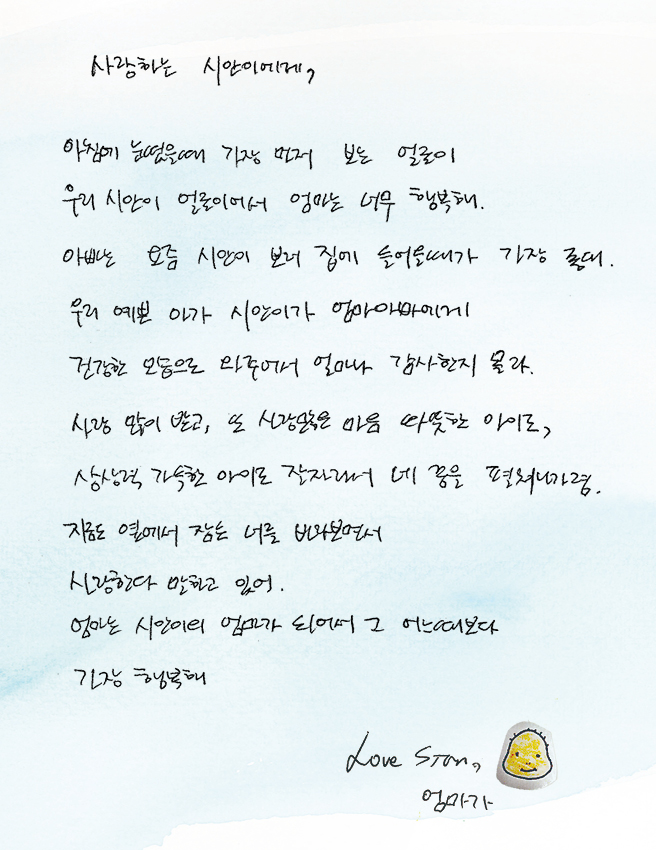 사랑하는 시안이에게,
아침에 눈떴을때 가장 먼저 보는 얼굴이
우리 시안이 얼굴이어서 엄마는 너무 행복해.
아빠는 요즘 시안이 보러 집에 들어올때가 가장 좋대.
우리 예쁜 아가 시안이가 엄마아빠에게
건강한 모습으로 와주어서 얼마나 감사한지 몰라.
사랑 많이 받고, 또 사랑많은 마음 따뜻한 아이로,
상상력 가득한 아이로 잘자라서 네 꿈을 펼쳐나가렴.
지금도 옆에서 잠든 너를 바라보면서
사랑한다 말하고 있어.
엄마는 시안이의 엄마가 되어서 그 어느때보다
가장 행복해
Love Sian,
엄마가